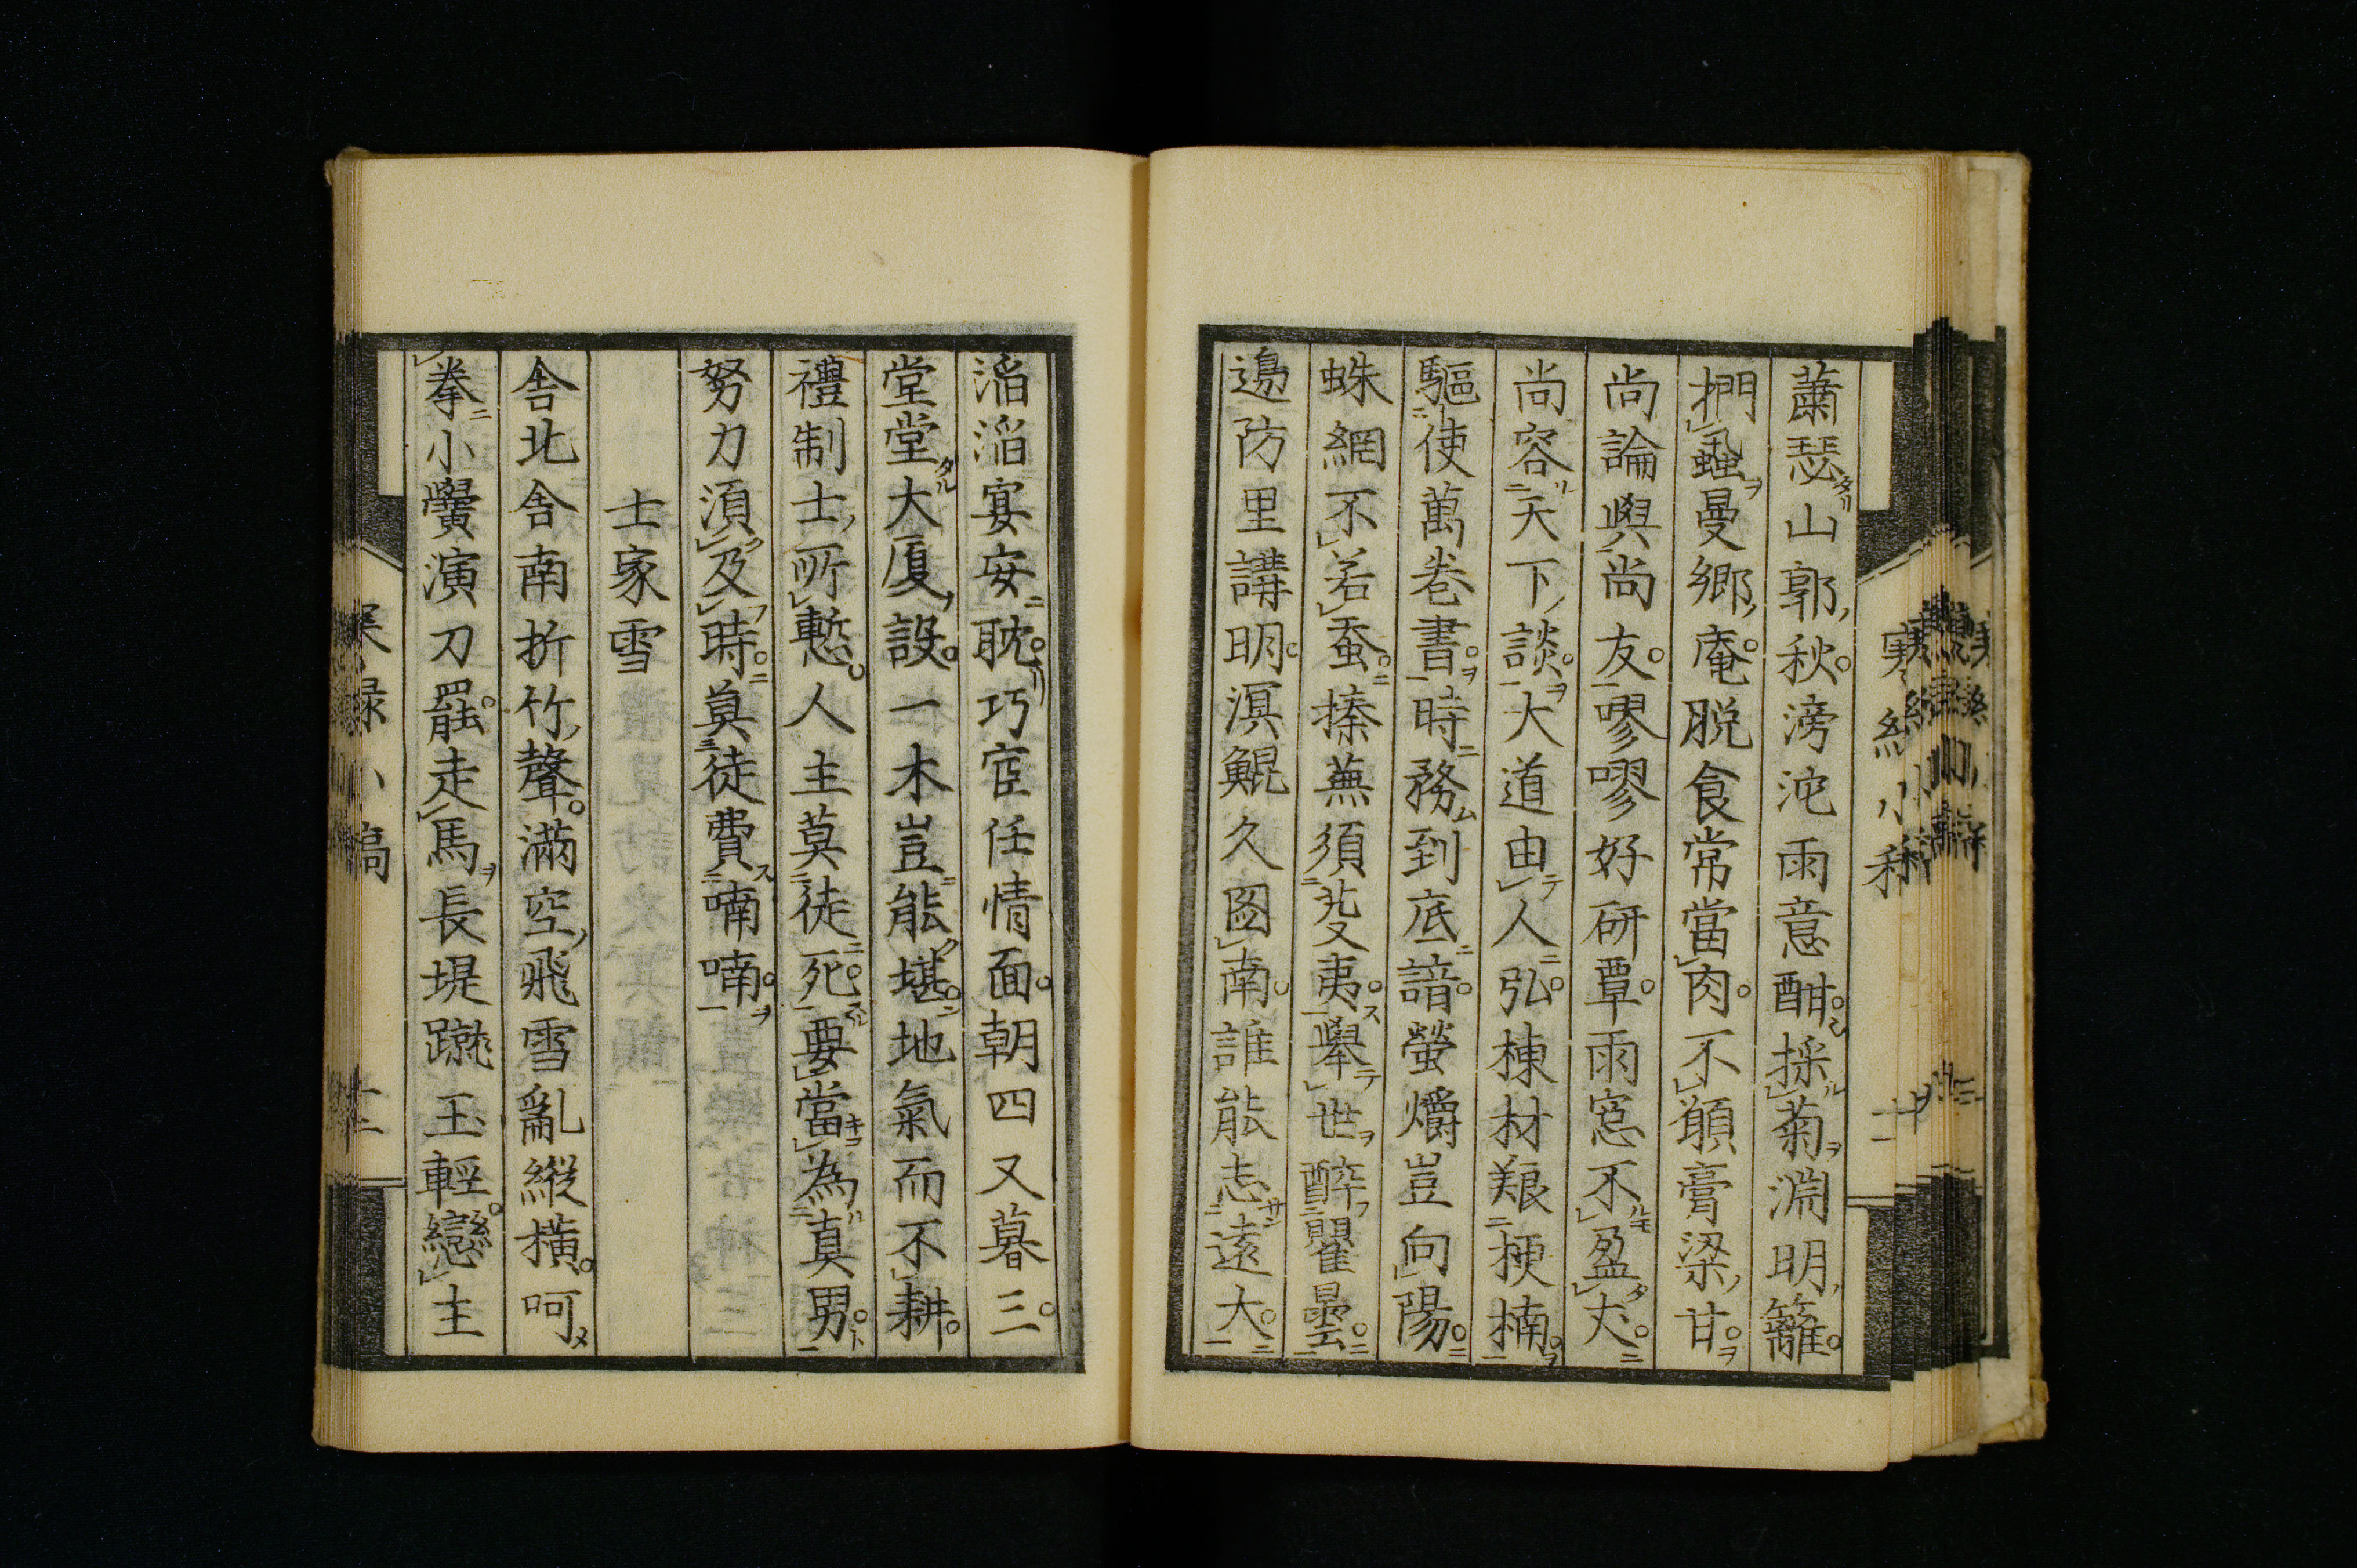 蕭瑟山郭秋滂沱雨意酣採菊淵明籬
捫蝨曼鄉庵脱食常當肉不願膏梁甘
尚論與尚友嘐嘐好研覃雨窓不盈丈
尚容天下談大道由人弘棟材艱梗楠
驅使萬卷書時務到底諳螢爝豈向陽
蛛網不若蚕榛蕪須芟夷舉世醉瞿曇
邊防里講明溟鯤久圖南誰能志遠大
滔滔宴安耽巧宦任情面朝四又暮三
堂堂大厦設一木豈能堪地氣而不耕
禮制士所慙人主莫徒死要當為真男
努力須及時莫徒費喃喃
士家雪
舎北舎南折竹聲滿空飛雪亂縱橫呵
拳小黌演刀罷走馬長堤蹴玉輕戀主